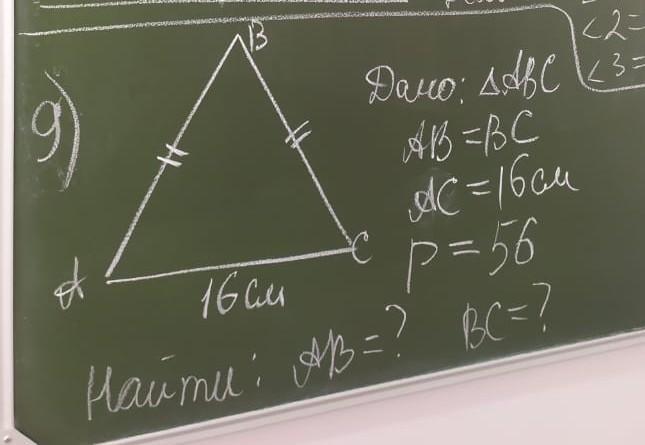 ∠2=
∠3=
9)
B
A
C
16 см
Дано: △ABC
AB = BC
AC = 16 см
P = 56
Найти: AB = ? BC = ?